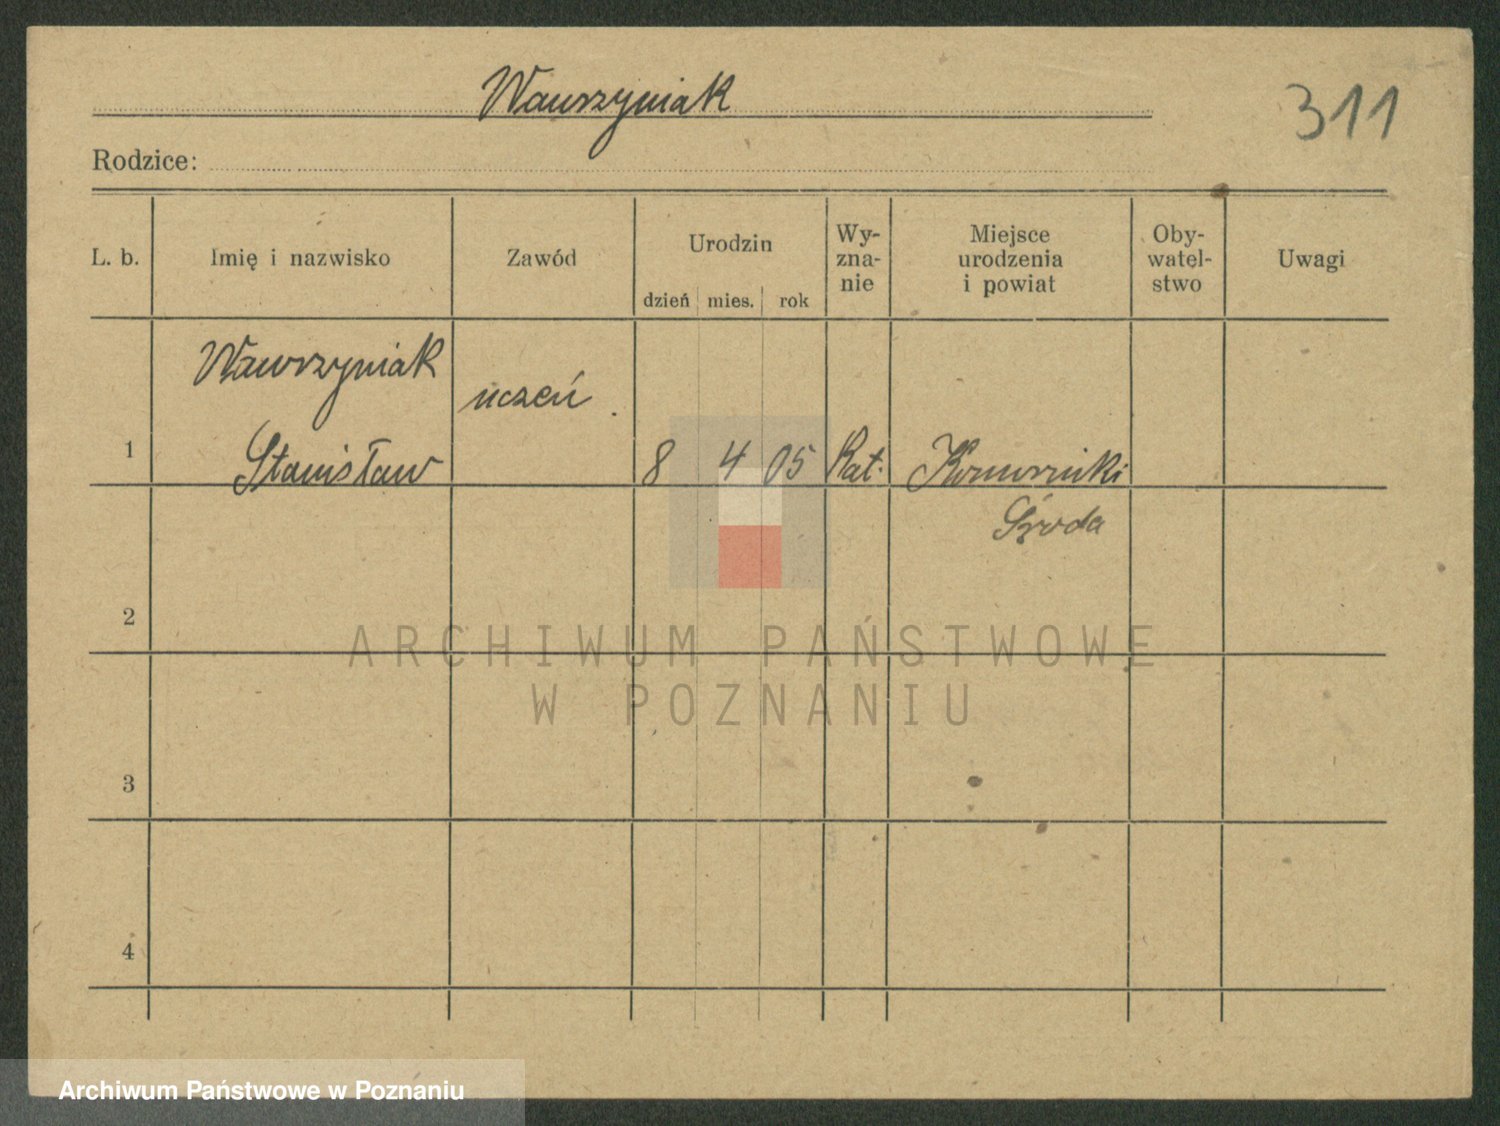 Wawrzyniak
311
Rodzice:
L. b.
Imię i nazwisko
Zawód
Urodzin
dzień mies. rok
Wy-
zna-
nie
Miejsce
urodzenia
i powiat
Oby-
watel-
stwo
Uwagi
1
Wawrzyniak
Stanisław
uczeń
8 4 05
Kat.
Komorniki
Środa
2
3
4
ARCHIWUM PAŃSTWOWE
W POZNANIU
Archiwum Państwowe w Poznaniu